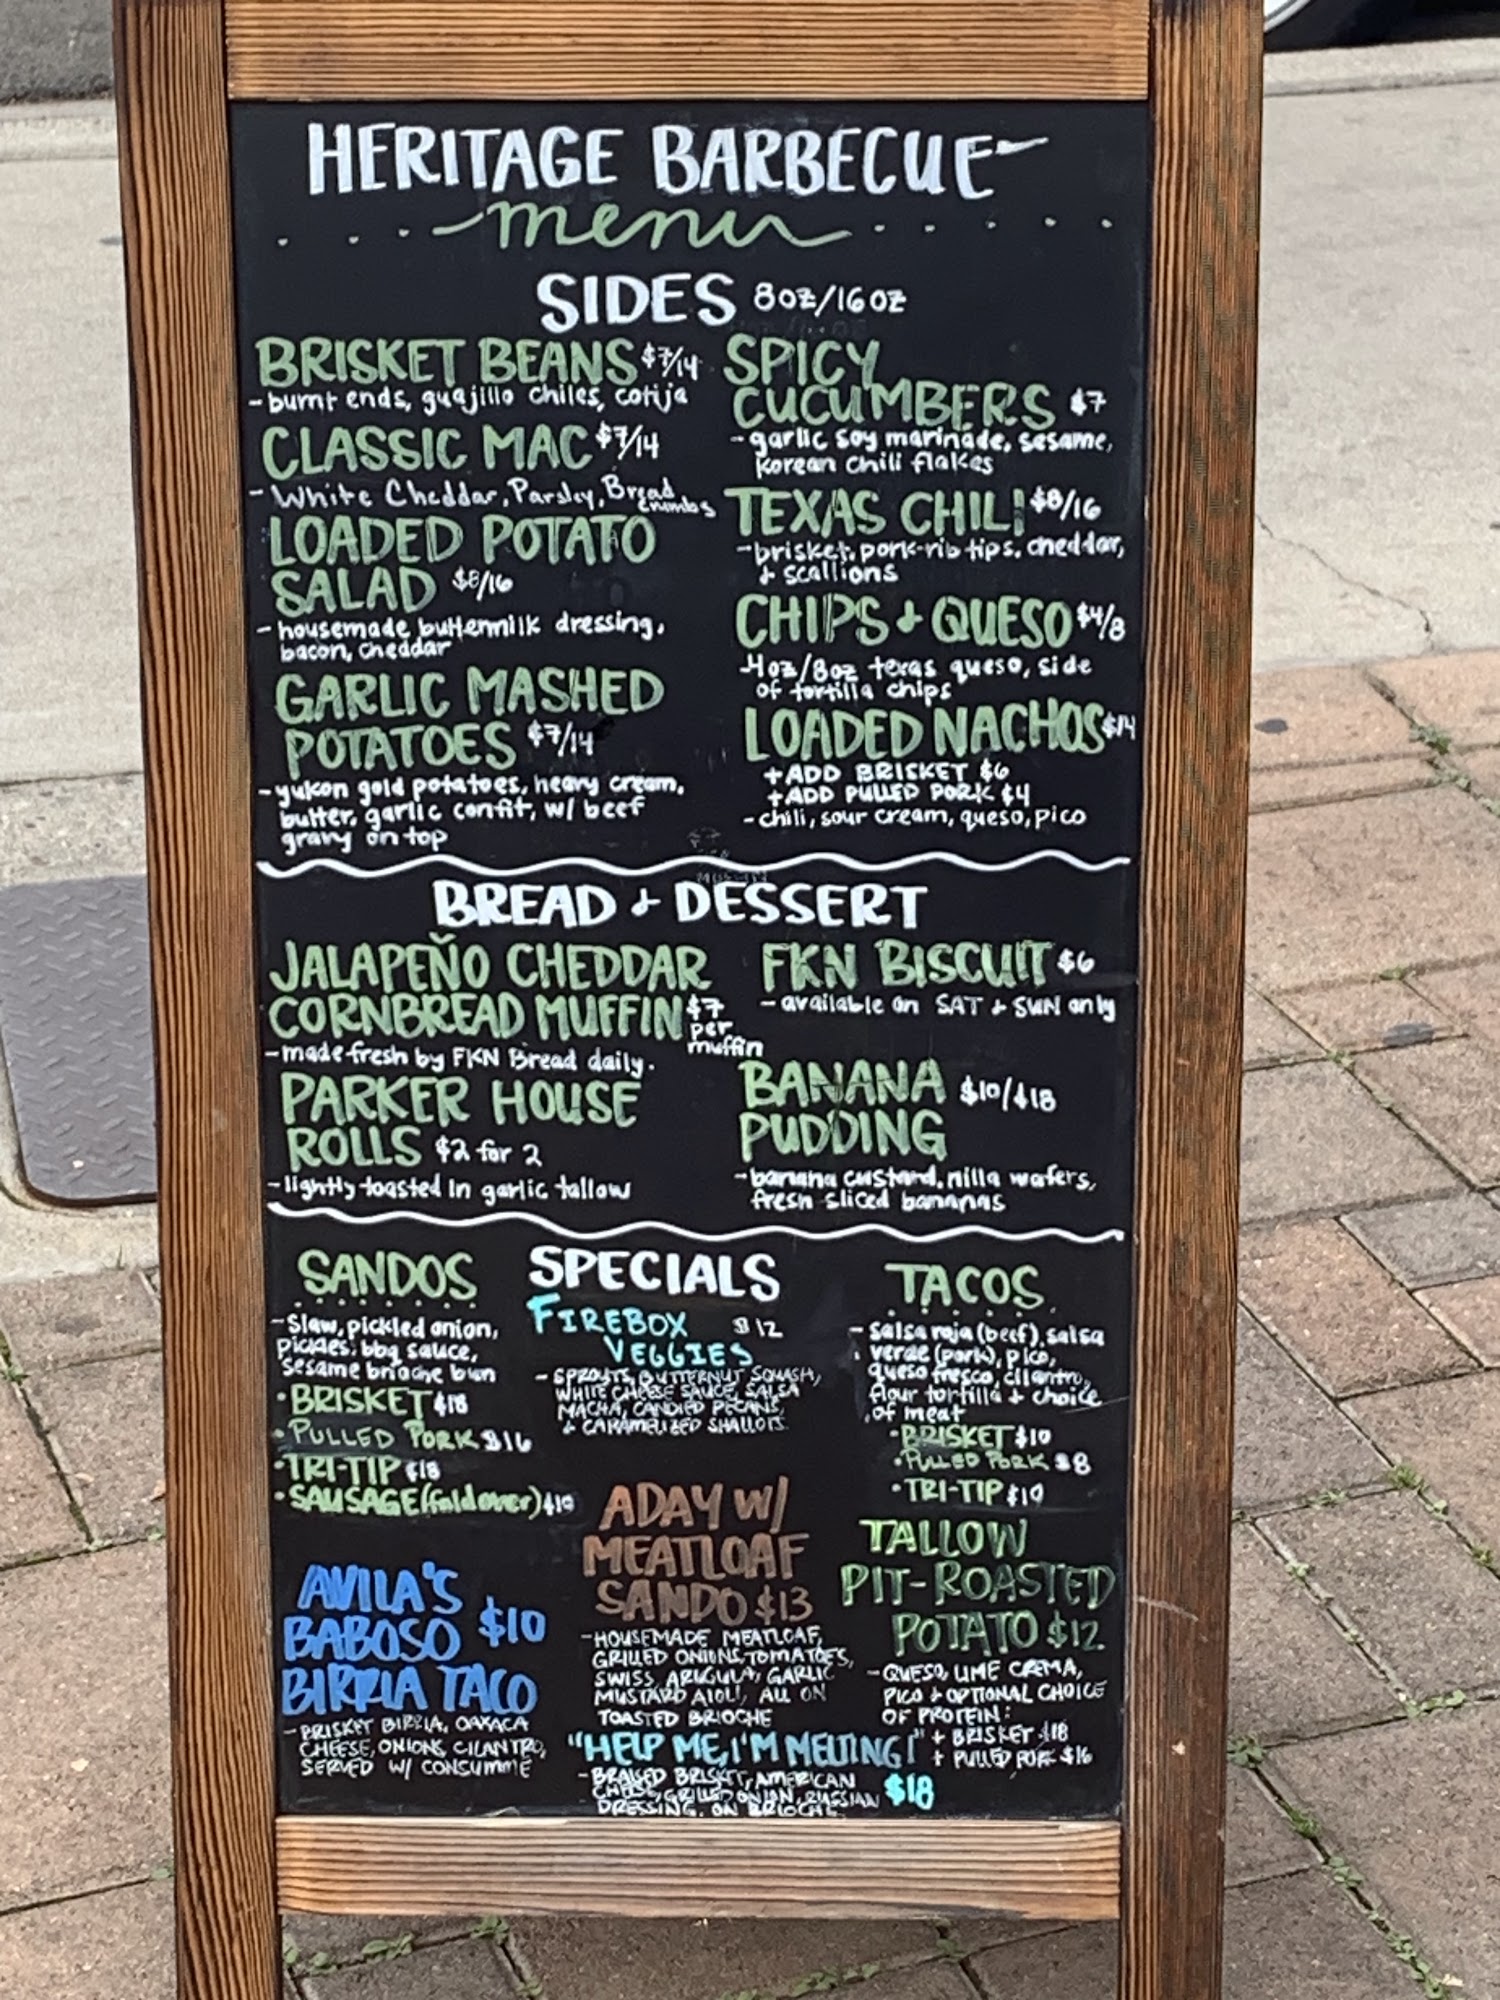 HERITAGE BARBECUE
menu
SIDES 8oz/16oz
BRISKET BEANS $7/14
- burnt ends, guajillo chiles, cotija
CLASSIC MAC $7/14
- White Cheddar, Parsley, Bread
crumbs
LOADED POTATO
SALAD $8/16
- housemade buttermilk dressing,
bacon, cheddar
GARLIC MASHED
POTATOES $7/14
- yukon gold potatoes, heavy cream,
butter, garlic confit, w/ beef
gravy on top
SPICY
CUCUMBERS $7
- garlic soy marinade, sesame,
korean chili flakes
TEXAS CHILI $8/16
- brisket, pork-rib tips, cheddar,
+ scallions
CHIPS + QUESO $4/8
- 4oz/8oz texas queso, side
of tortilla chips
LOADED NACHOS $14
+ADD BRISKET $6
+ADD PULLED PORK $4
- chili, sour cream, queso, pico
BREAD + DESSERT
JALAPEÑO CHEDDAR
CORNBREAD MUFFIN $7
per
muffin
- made fresh by FKN Bread daily.
PARKER HOUSE
ROLLS $2 for 2
- lightly toasted in garlic tallow
FKN BISCUIT $6
- available on SAT + SUN only
BANANA $10/$18
PUDDING
- banana custard, nilla wafers,
fresh sliced bananas
SANDOS
- slaw, pickled onion,
pickles, bbq sauce,
sesame brioche bun
• BRISKET $18
• PULLED PORK $16
• TRI-TIP $18
• SAUSAGE (foldover) $10
AVILA'S
BABOSO $10
BIRRIA TACO
- BRISKET BIRRIA, OAXACA
CHEESE, ONIONS, CILANTRO,
SERVED W/ CONSUMME
SPECIALS
FIREBOX $12
VEGGIES
- SPROUTS, BUTTERNUT SQUASH,
WHITE CHEESE SAUCE, SALSA
MACHA, CANDIED PECANS,
+ CARAMELIZED SHALLOTS.
ADAY W/
MEATLOAF
SANDO $13
- HOUSEMADE MEATLOAF,
GRILLED ONIONS, TOMATOES,
SWISS, ARUGULA, GARLIC
MUSTARD AIOLI, ALL ON
TOASTED BRIOCHE
"HELP ME, I'M MELTING!"
- BRAISED BRISKET, AMERICAN
CHEESE, GRILLED ONION, RUSSIAN $18
DRESSING, ON BRIOCHE.
TACOS
- salsa roja (beef), salsa
verde (pork), pico,
queso fresco, cilantro,
flour tortilla + choice
of meat
• BRISKET $10
• PULLED PORK $8
• TRI-TIP $10
TALLOW
PIT-ROASTED
POTATO $12
- QUESO, LIME CREMA,
PICO + OPTIONAL CHOICE
OF PROTEIN:
+ BRISKET $18
+ PULLED PORK $16